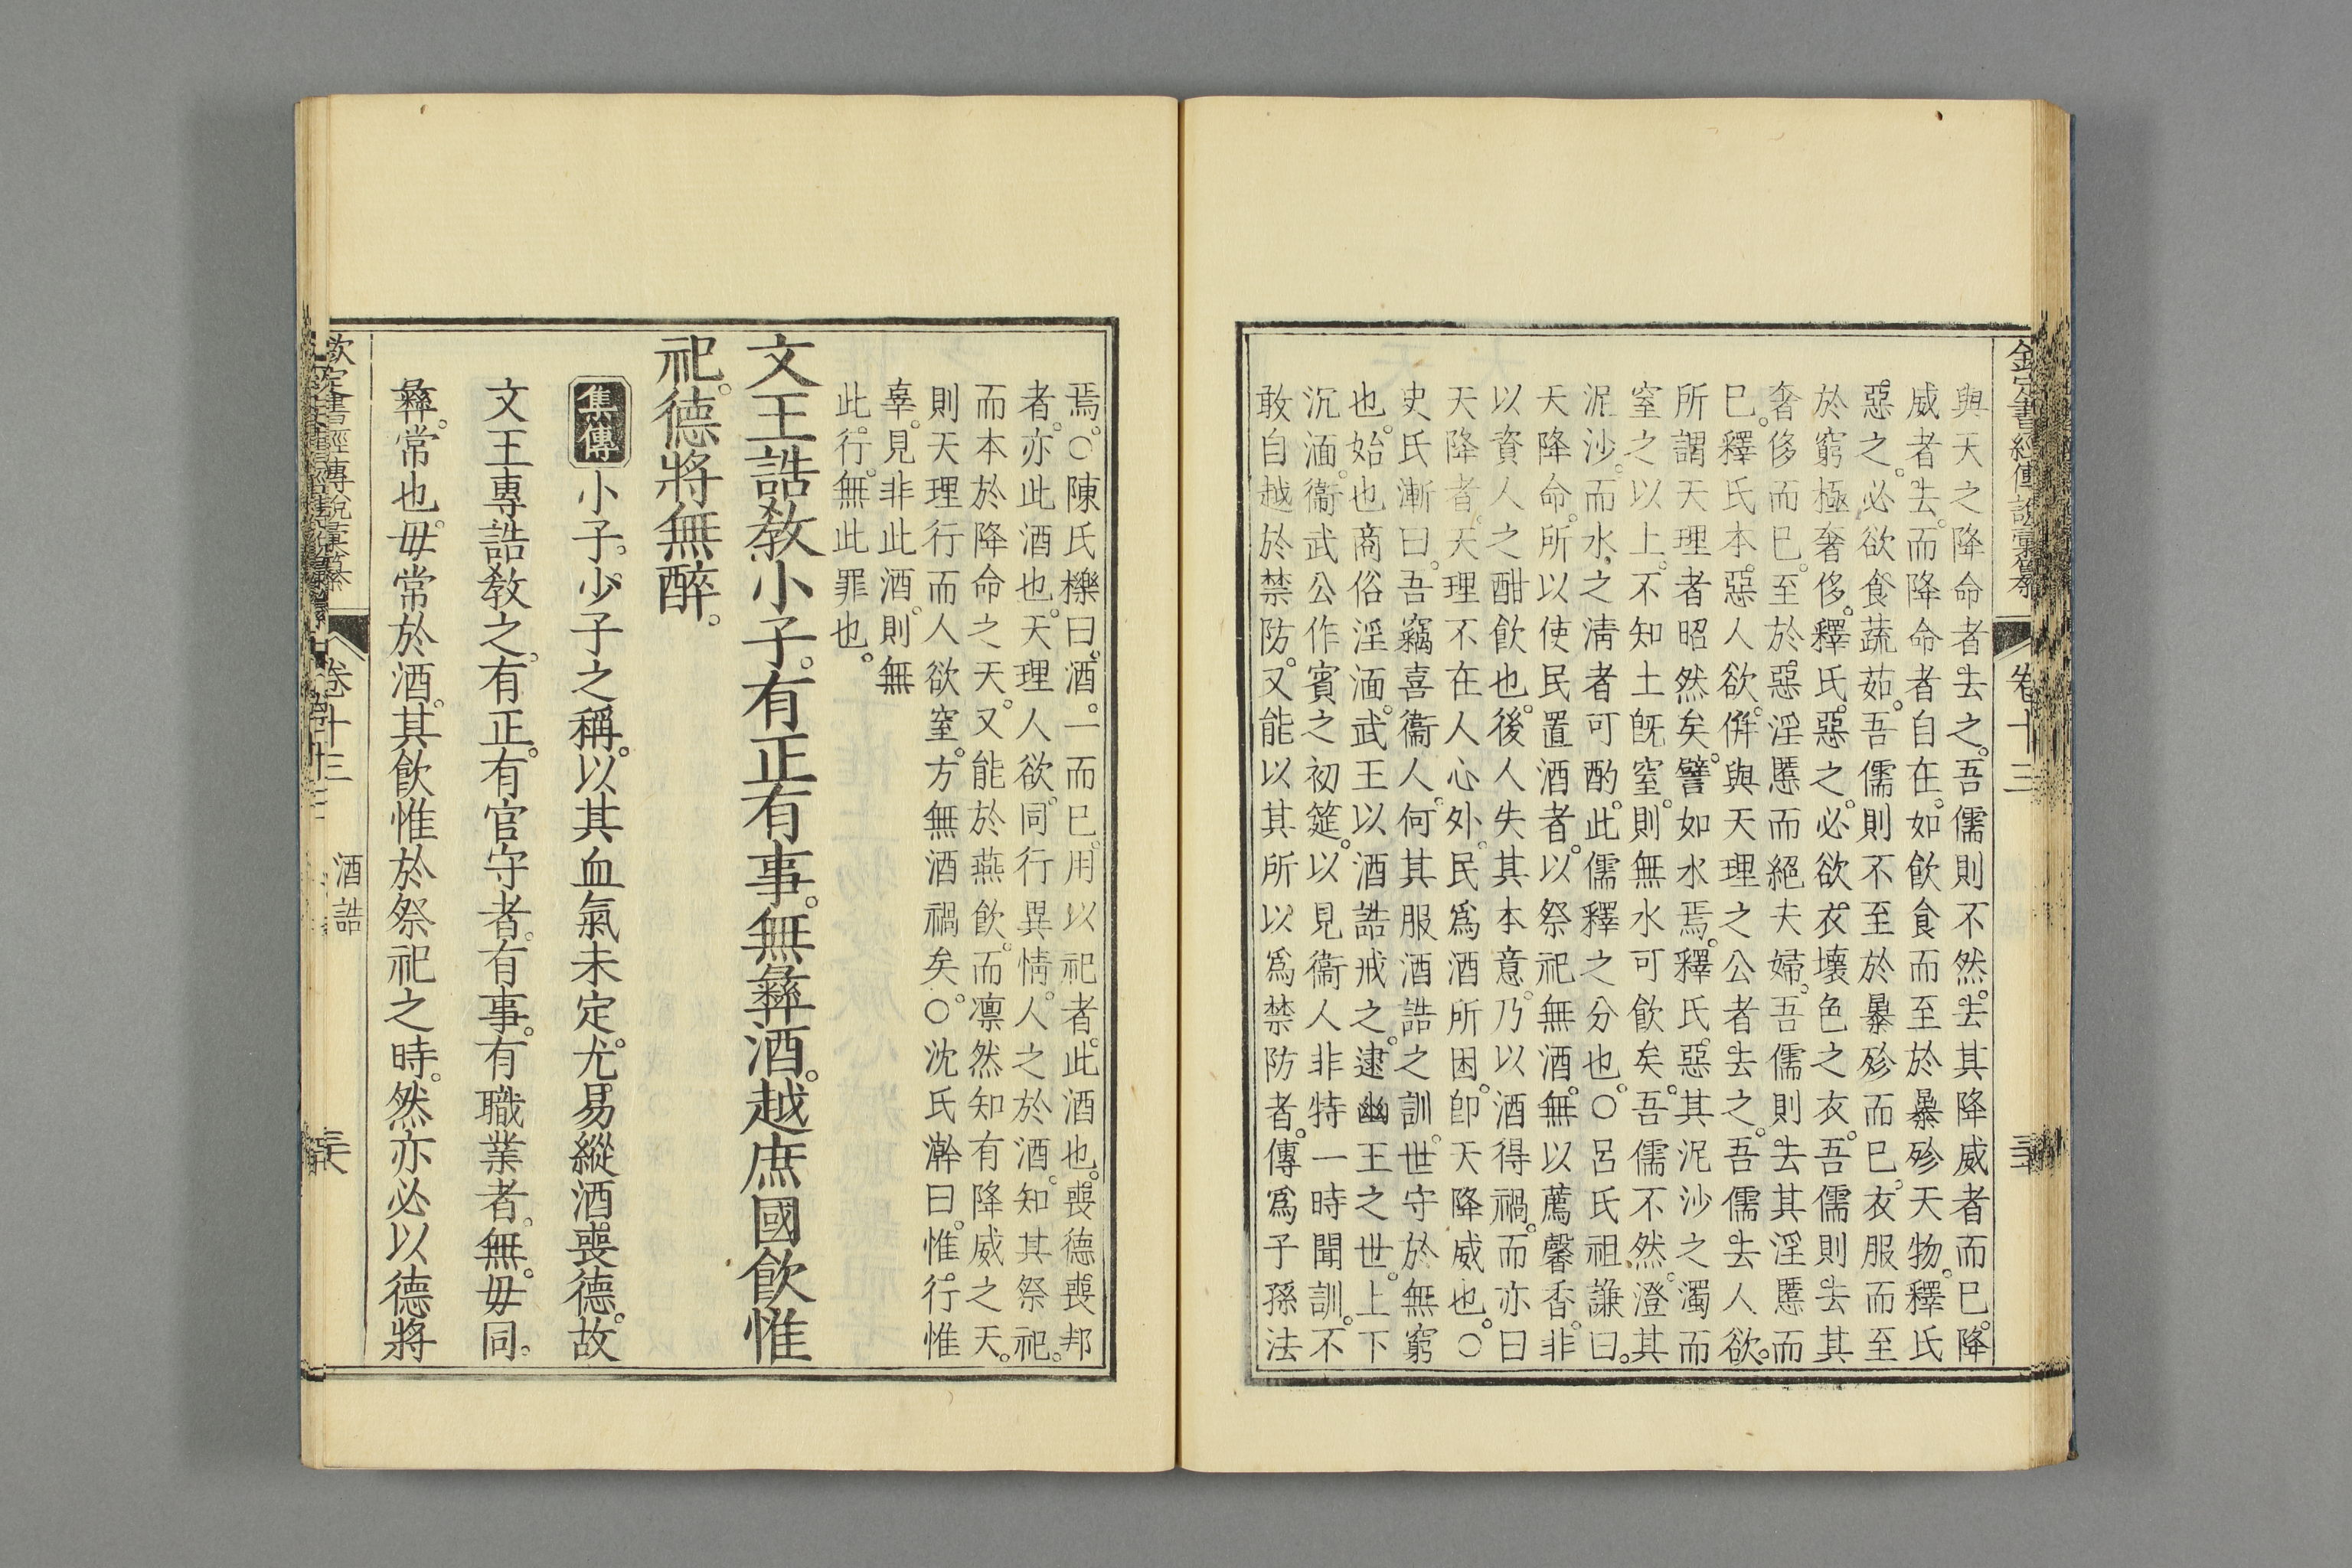 欽定書經傳說彙纂 卷十三
與天之降命者去之。吾儒則不然。去其降威者而已。降
威者去。而降命者自在。如飲食而至於暴殄天物。釋氏
惡之。必欲食蔬茹。吾儒則不至於暴殄而已。衣服而至
於窮極奢侈。釋氏惡之。必欲衣壞色之衣。吾儒則去其
奢侈而已。至於惡淫慝而絕夫婦。吾儒則去其淫慝而
已。釋氏本惡人欲。併與天理之公者去之。吾儒去人欲。
所謂天理者昭然矣。譬如水焉。釋氏惡其泥沙之濁而
窒之以上。不知土旣窒。則無水可飲矣。吾儒不然。澄其
泥沙。而水之淸者可酌。此儒釋之分也。○呂氏祖謙曰。
天降命。所以使民置酒者。以祭祀無酒。無以薦馨香。非
以資人之酣飲也。後人失其本意。乃以酒得禍。而亦曰
天降者。天理不在人心外。民爲酒所困。卽天降威也。○
史氏漸曰。吾竊喜衞人。何其服酒誥之訓。世守於無窮
也。始也商俗淫湎。武王以酒誥戒之。逮幽王之世。上下
沉湎。衞武公作賓之初筵。以見衞人非特一時聞訓。不
敢自越於禁防。又能以其所以爲禁防者。傳爲子孫法
焉。○陳氏櫟曰。酒。一而已。用以祀者。此酒也。喪德喪邦
者。亦此酒也。天理人欲。同行異情。人之於酒。知其祭祀。
而本於降命之天。又能於燕飲。而凛然知有降威之天。
則天理行而人欲窒。方無酒禍矣。○沈氏澣曰。惟行惟
辜。見非此酒。則無
此行。無此罪也。
文王誥敎小子。有正有事。無彝酒。越庶國飲惟
祀。德將無醉。
集傳 小子。少子之稱。以其血氣未定。尤易縱酒喪德。故
文王專誥敎之。有正。有官守者。有事。有職業者。無。毋同。
彝。常也。毋常於酒。其飲惟於祭祀之時。然亦必以德將
欽定書經傳說彙纂 卷十三 酒誥